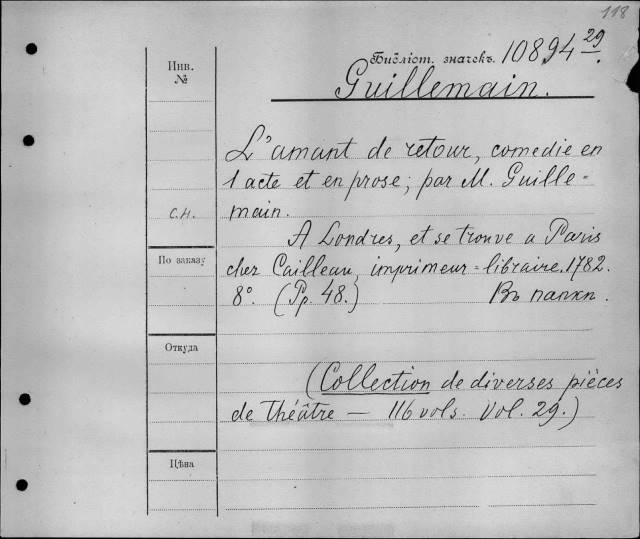 118
Библіот. значекъ. 10894 29.
Инв.
№
Guillemain.
L'amant de retour, comedie en
1 acte et en prose; par M. Guille=
main.
С.Н.
A Londres, et se trouve a Paris
По заказу
cher Cailleau, imprimeur=libraire, 1782.
8° (Pp. 48.) Въ папкп.
Откуда
(Collection de diverses pièces
de théâtre — 116 vols. Vol. 29.)
Цѣна